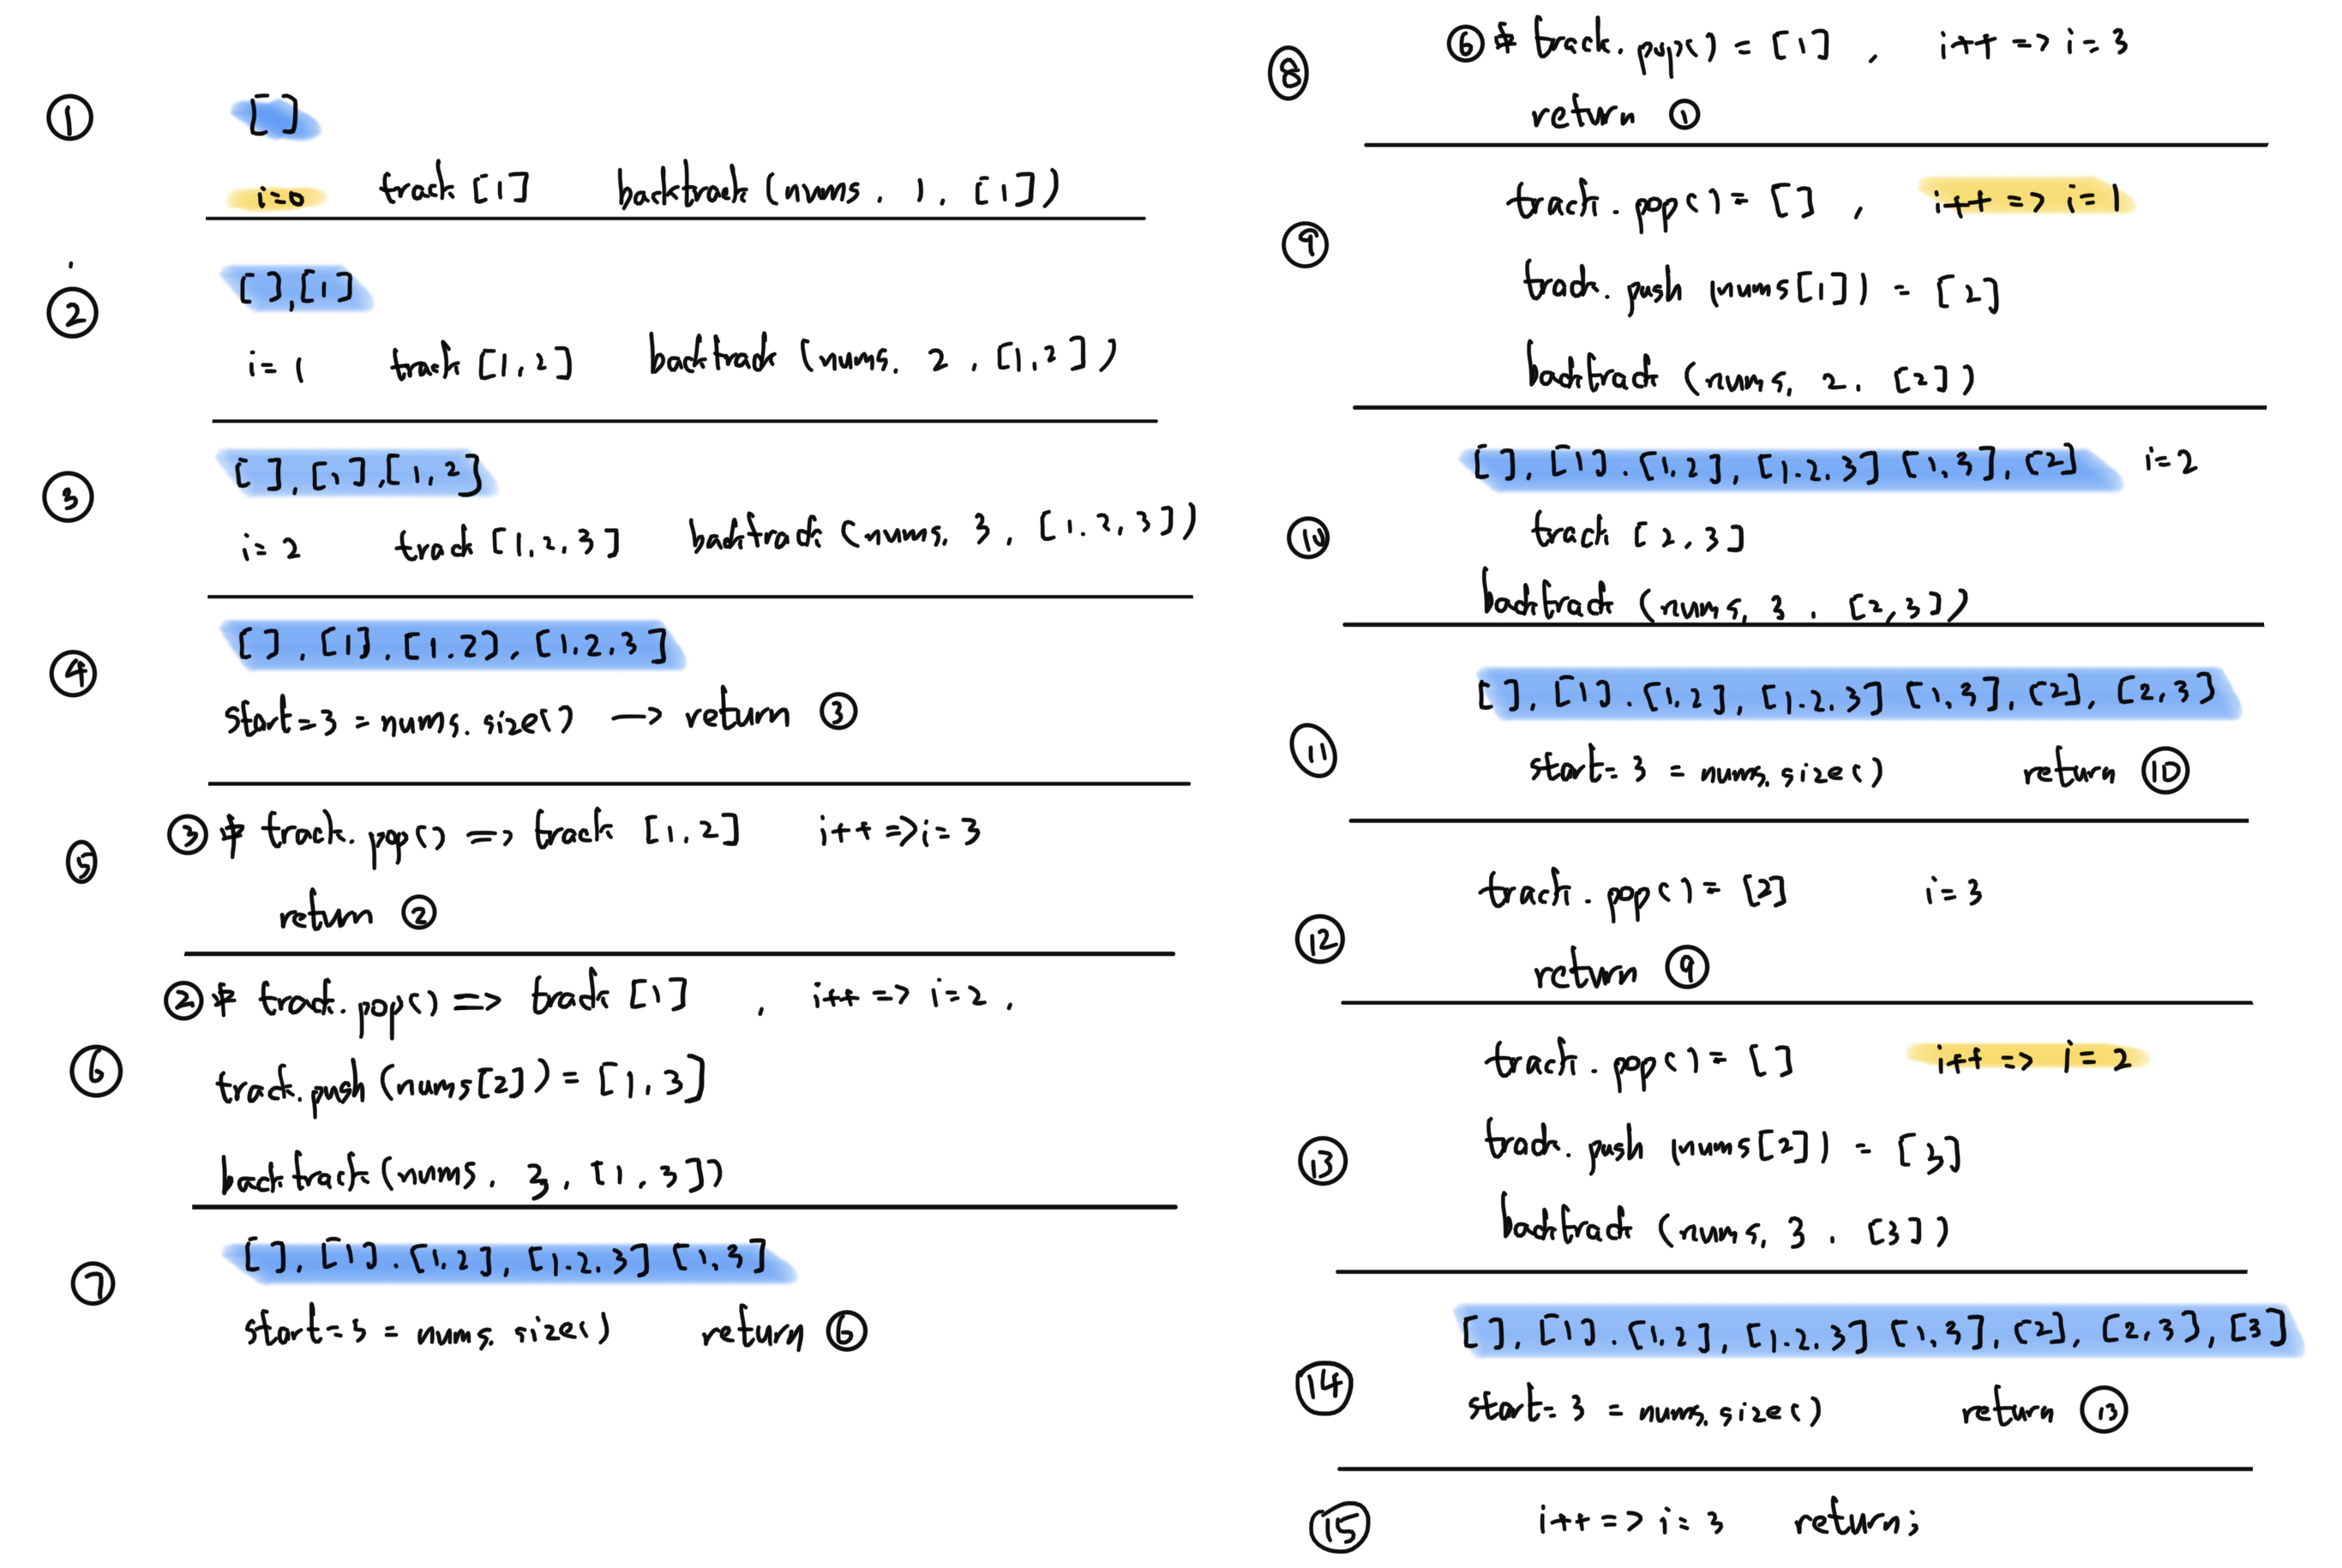 ①
[ ]
i=0 track [1] backtrack (nums, 1, [1])
②
[ ], [1]
i= 1 track [1,2] backtrack (nums, 2, [1,2])
③
[ ], [1], [1,2]
i= 2 track [1,2,3] backtrack (nums, 3, [1,2,3])
④
[ ], [1], [1,2], [1,2,3]
start=3 = nums.size() —> return ③
⑤
③ track.pop() => track [1,2] i++ => i= 3
return ②
⑥
② track.pop() => track [1] , i++ => i=2 .
track.push(nums[2]) = [1,3]
backtrack(nums, 3, [1,3])
⑦
[ ], [1], [1,2], [1,2,3] [1,3]
start=3 = nums.size() return ⑥
⑧
⑥ track.pop() = [1] , i++ => i= 3
return ①
⑨
track.pop() = [ ] , i++ => i= 1
track.push (nums[1]) = [2]
backtrack (nums, 2, [2])
⑩
[ ], [1], [1,2], [1,2,3] [1,3], [2] i=2
track [2,3]
backtrack (nums, 3, [2,3])
⑪
[ ], [1], [1,2], [1,2,3] [1,3], [2], [2,3]
start= 3 = nums.size() return ⑩
⑫
track.pop() = [2] i= 3
return ⑨
⑬
track.pop() = [ ] i++ => i= 2
track.push (nums[2]) = [3]
backtrack (nums, 3, [3])
⑭
[ ], [1], [1,2], [1,2,3] [1,3], [2], [2,3], [3]
start= 3 = nums.size() return ⑬
⑮
i++ => i= 3 return;